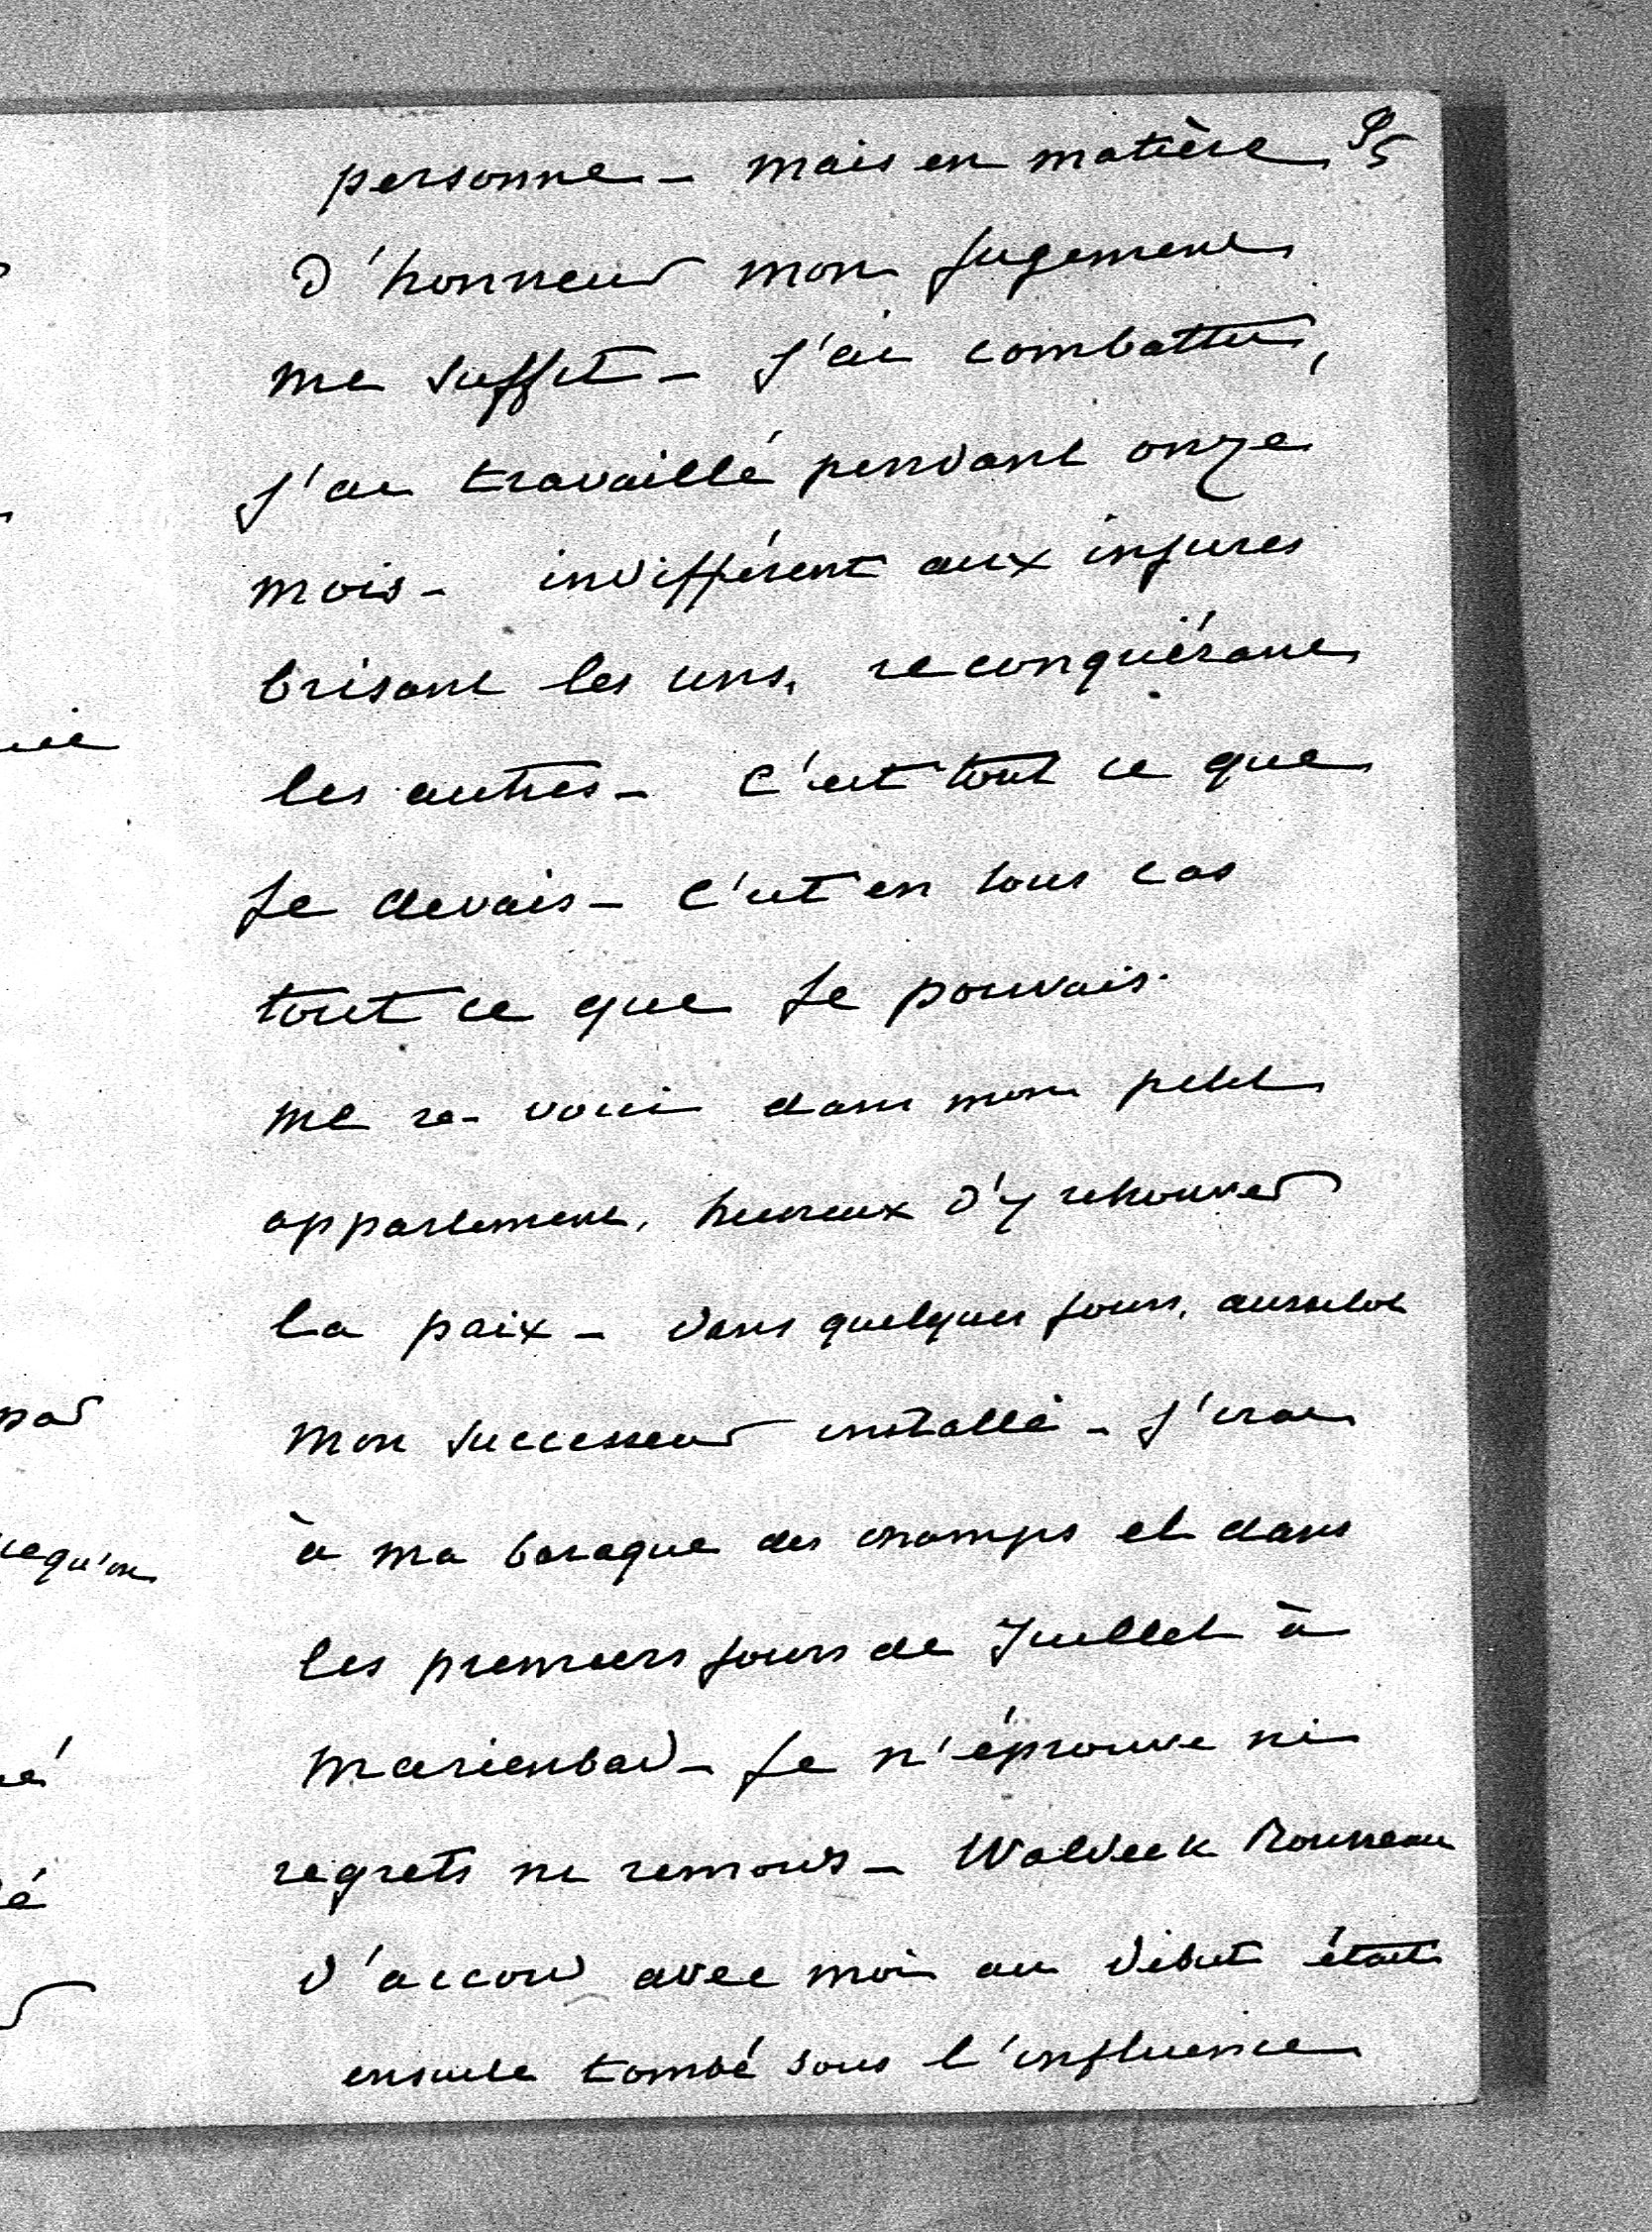 95
personne - mais en matière
d'honneur mon jugement
me suffit - j'ai combattu,
j'ai travaillé pendant onze
mois - indifférent aux injures
brisant les uns, reconquérant
les autres - c'est tout ce que
je devais - c'est en tous cas
tout ce que je pouvais.
me re-voici dans mon petit
appartement, heureux d'y retrouver
la paix - dans quelques jours, aussitot
mon successeur installé - j'irai
à ma baraque des champs et dans
les premiers jours de Juillet à
Marienbad - je n'éprouve ni
regrets ni remords - Waldeck Rousseau
d'accord avec moi au début était
ensuite tombé sous l'influence